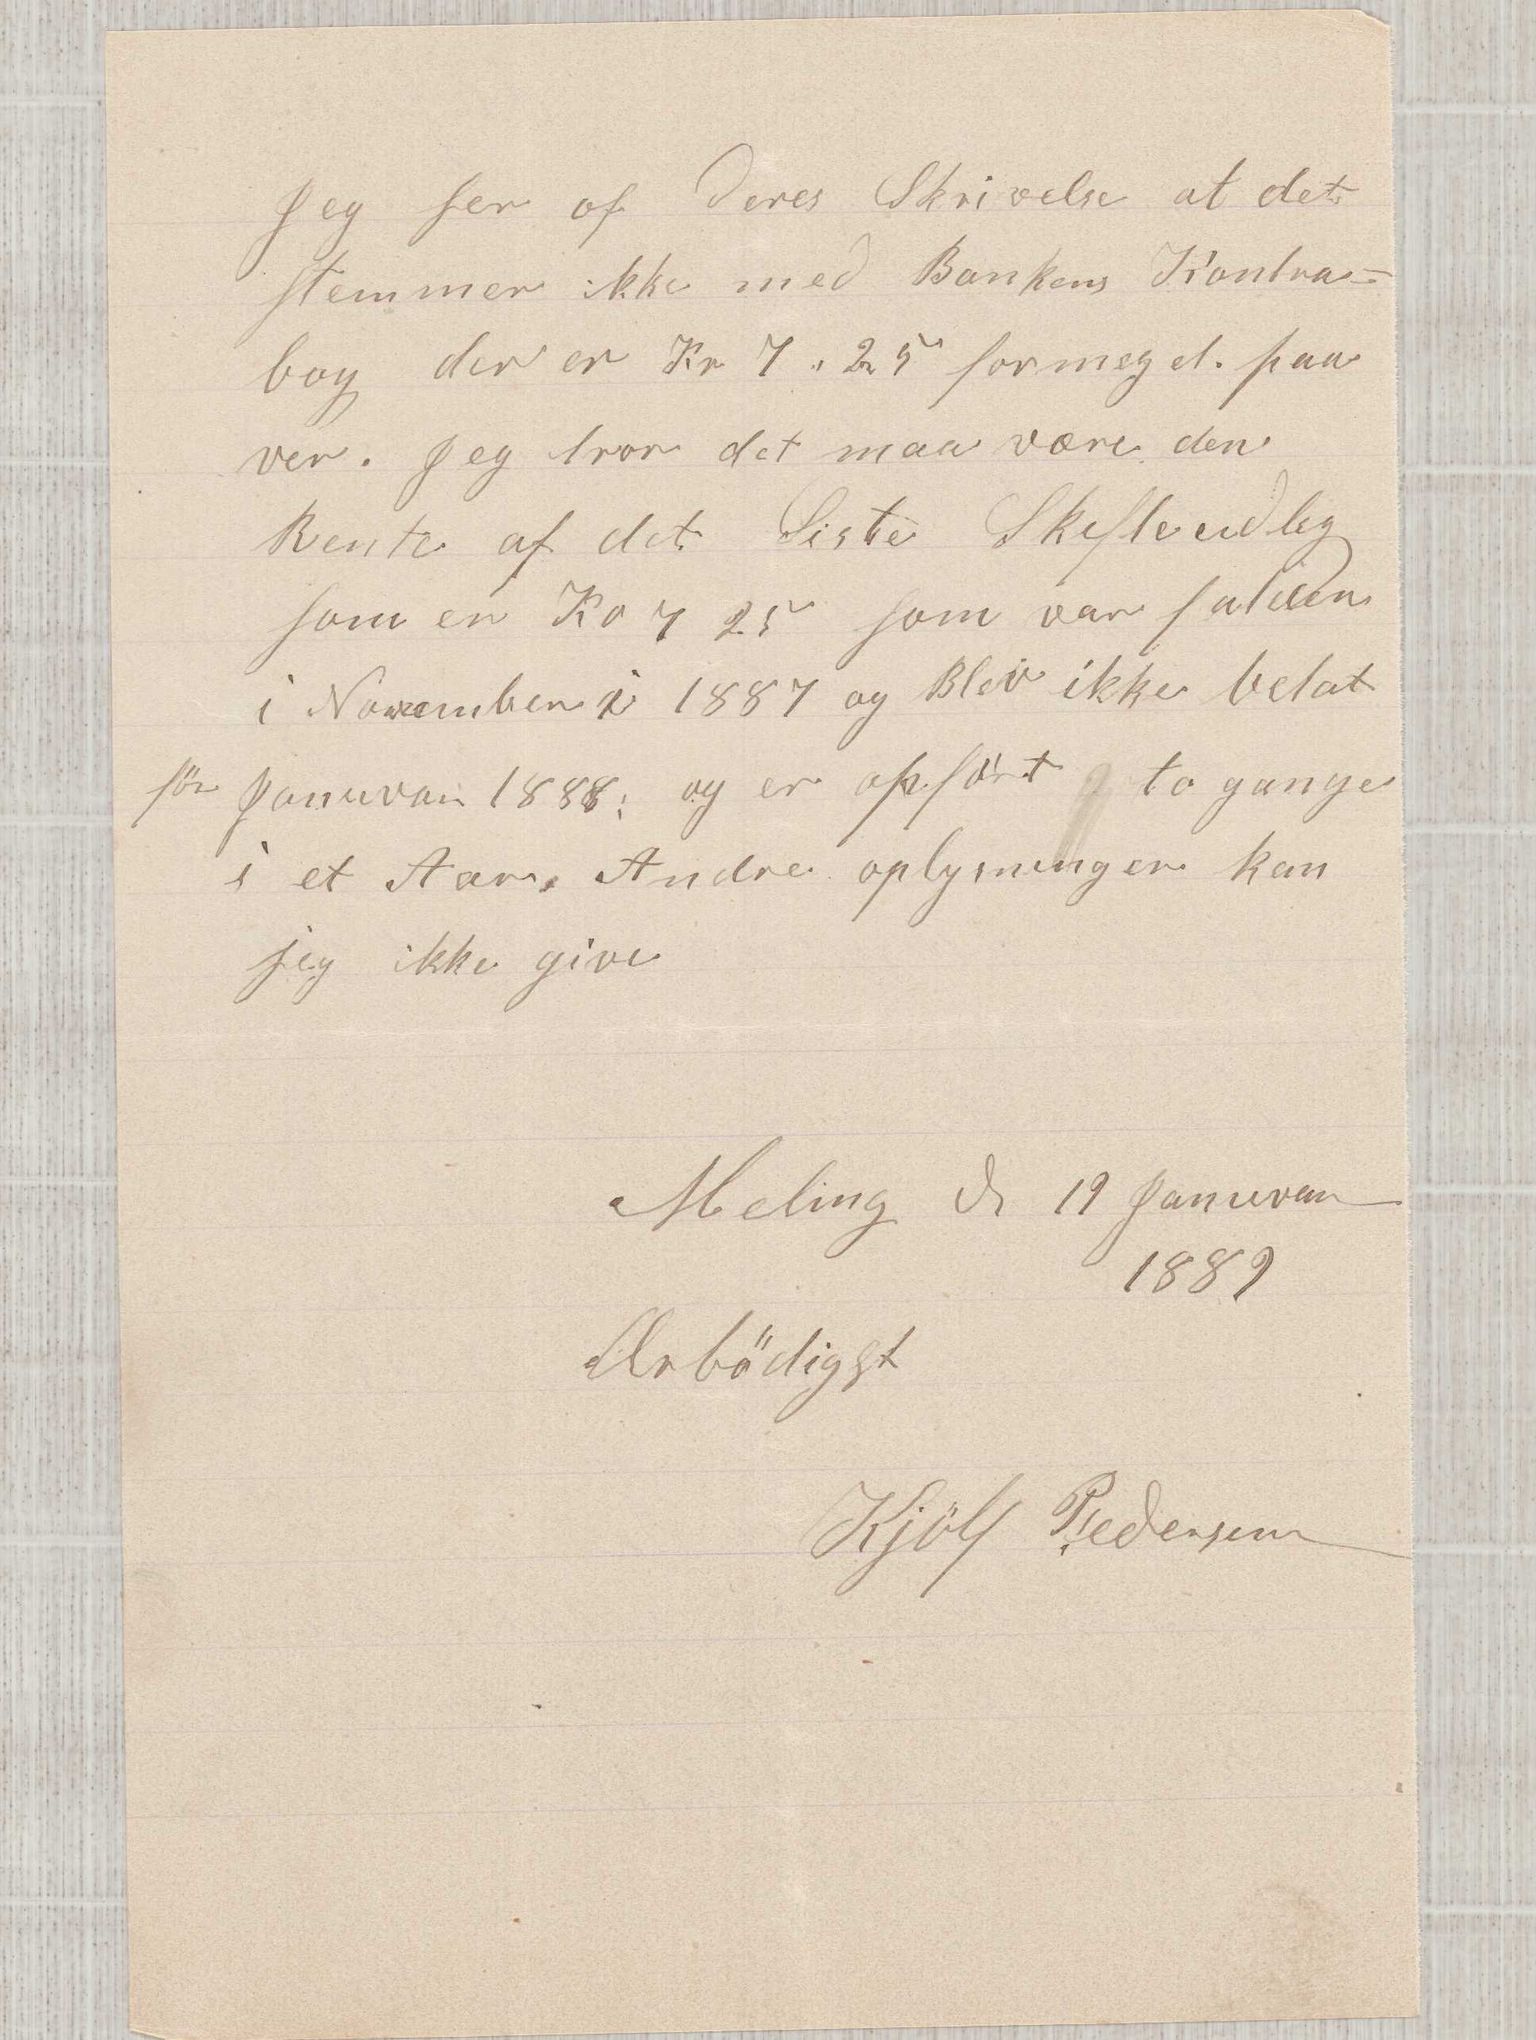 Jeg ser af Deres Skrivelse at det
stemmer ikke med Bankens Kontra=
bog der er Kr 7.25 formeget. paa
ver. Jeg tror det maa være den
Rente af det Siste Skifteudleg
som er Kr 7 25 som var falden
i November i 1887 og Blev ikke betalt
för Januvar 1888. og er opfört to gange
i et Aar. Andre oplysninger kan
jeg ikke give
Meling d 19 Januvar
1889
Ærbödigst
Kjölf Pedersen